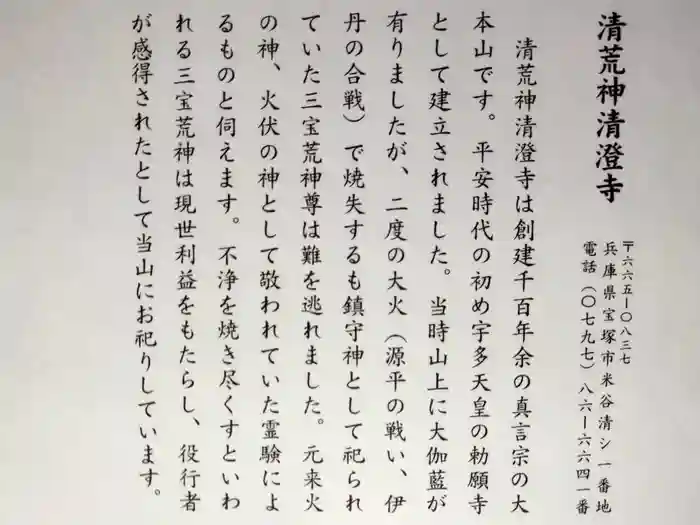 清荒神清澄寺
〒六六五ー〇八三七
兵庫県宝塚市米谷清シ一番地
電話（〇七九七）八六ー六六四一番
清荒神清澄寺は創建千百年余の真言宗の大
本山です。平安時代の初め宇多天皇の勅願寺
として建立されました。当時山上に大伽藍が
有りましたが、二度の大火（源平の戦い、伊
丹の合戦）で焼失するも鎮守神として祀られ
ていた三宝荒神尊は難を逃れました。元来火
の神、火伏の神として敬われていた霊験によ
るものと伺えます。不浄を焼き尽くすといわ
れる三宝荒神は現世利益をもたらし、役行者
が感得されたとして当山にお祀りしています。